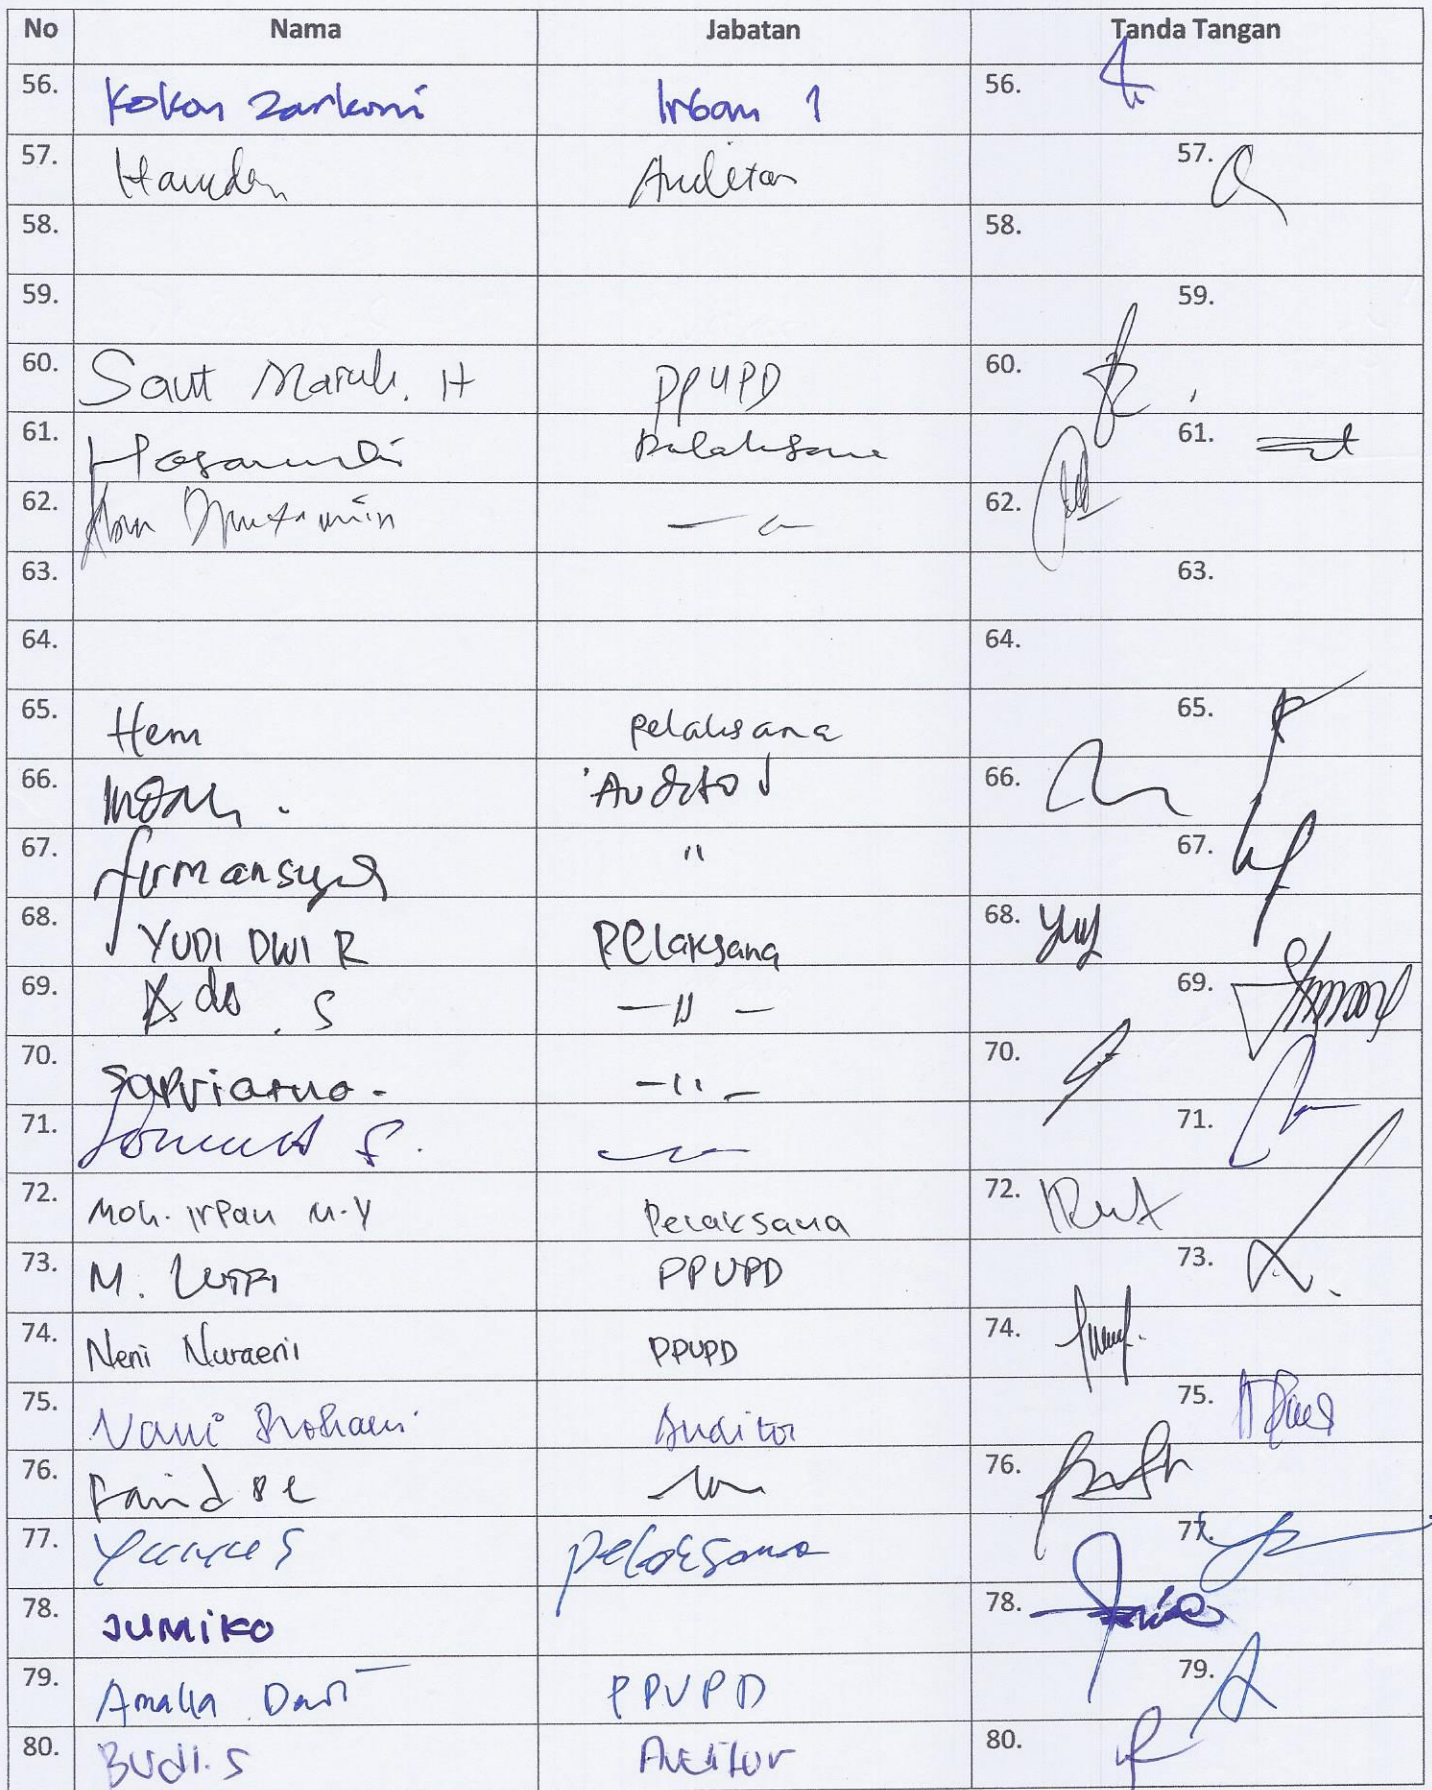 No Nama Jabatan Tanda Tangan
56. Kokon Zarkoni Irban 1 56.
57. Hamdan Auditor 57.
58. 58.
59. 59.
60. Saut Maruli. H PPUPD 60.
61. 61.
62. 62.
63. 63.
64. 64.
65. Heni Pelaksana 65.
66. Auditor 66.
67. Firmansyah " 67.
68. YUDI DWI R Pelaksana 68.
69. Ado . S — " — 69.
70. Sapriatno - — " — 70.
71. 71.
72. Moh. Irpan M.Y Pelaksana 72.
73. M. Lutfi PPUPD 73.
74. Neni Nuraeni PPUPD 74.
75. Nani Rohani Auditor 75.
76. Farid 76.
77. Yunus Pelaksana 77.
78. JUMIKO 78.
79. Amalia Dewi PPUPD 79.
80. Budi. S Auditor 80.